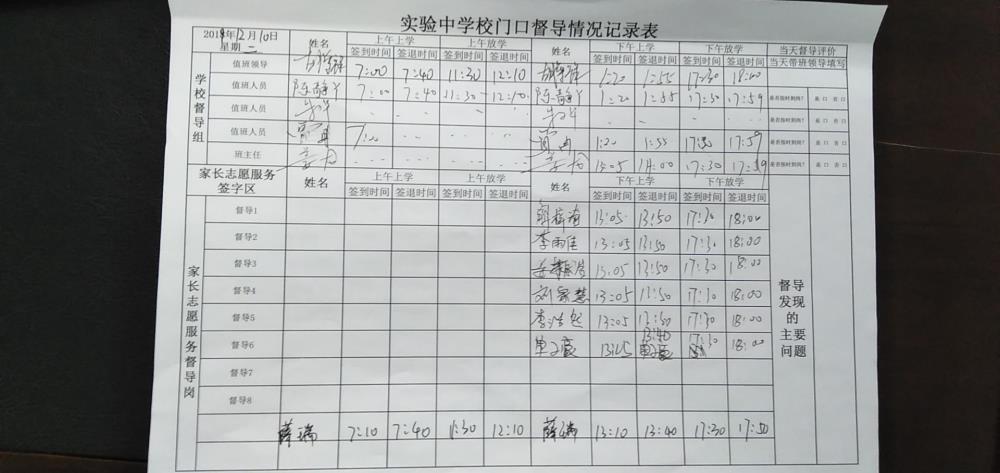 实验中学校门口督导情况记录表
2018年12月10日
星期二
姓名 上午上学 上午放学 姓名 下午上学 下午放学 当天督导评价
签到时间 签退时间 签到时间 签退时间 签到时间 签退时间 签到时间 签退时间 当天带班领导填写
学校督导组
值班领导 7:00 7:40 11:30 12:10 1:20 1:55 17:30 18:00
值班人员 陈静 7:00 7:40 11:30 12:10 陈静 1:20 1:55 17:30 17:59 是否按时到岗? 是 口 否 口
值班人员 是否按时到岗? 是 口 否 口
值班人员 7:00 1:20 1:55 17:30 17:59 是否按时到岗? 是 口 否 口
班主任 14:00 17:30 17:59 是否按时到岗? 是 口 否 口
家长志愿服务签字区 姓名 上午上学 上午放学 姓名 下午上学 下午放学
签到时间 签退时间 签到时间 签退时间 签到时间 签退时间 签到时间 签退时间
家长志愿服务督导岗
督导1 13:05 13:50 17:30 18:00
督导2 李雨佳 13:05 13:50 17:30 18:00
督导3 13:05 13:50 17:30 18:00
督导4 13:05 13:50 17:30 18:00
督导5 13:05 13:50 17:30 18:00
督导6 13:45 13:40 17:30 18:00
督导7
督导8
薛瑞 7:10 7:40 11:30 12:10 薛瑞 13:10 13:40 17:30 17:50
督导
发现
的
主要
问题